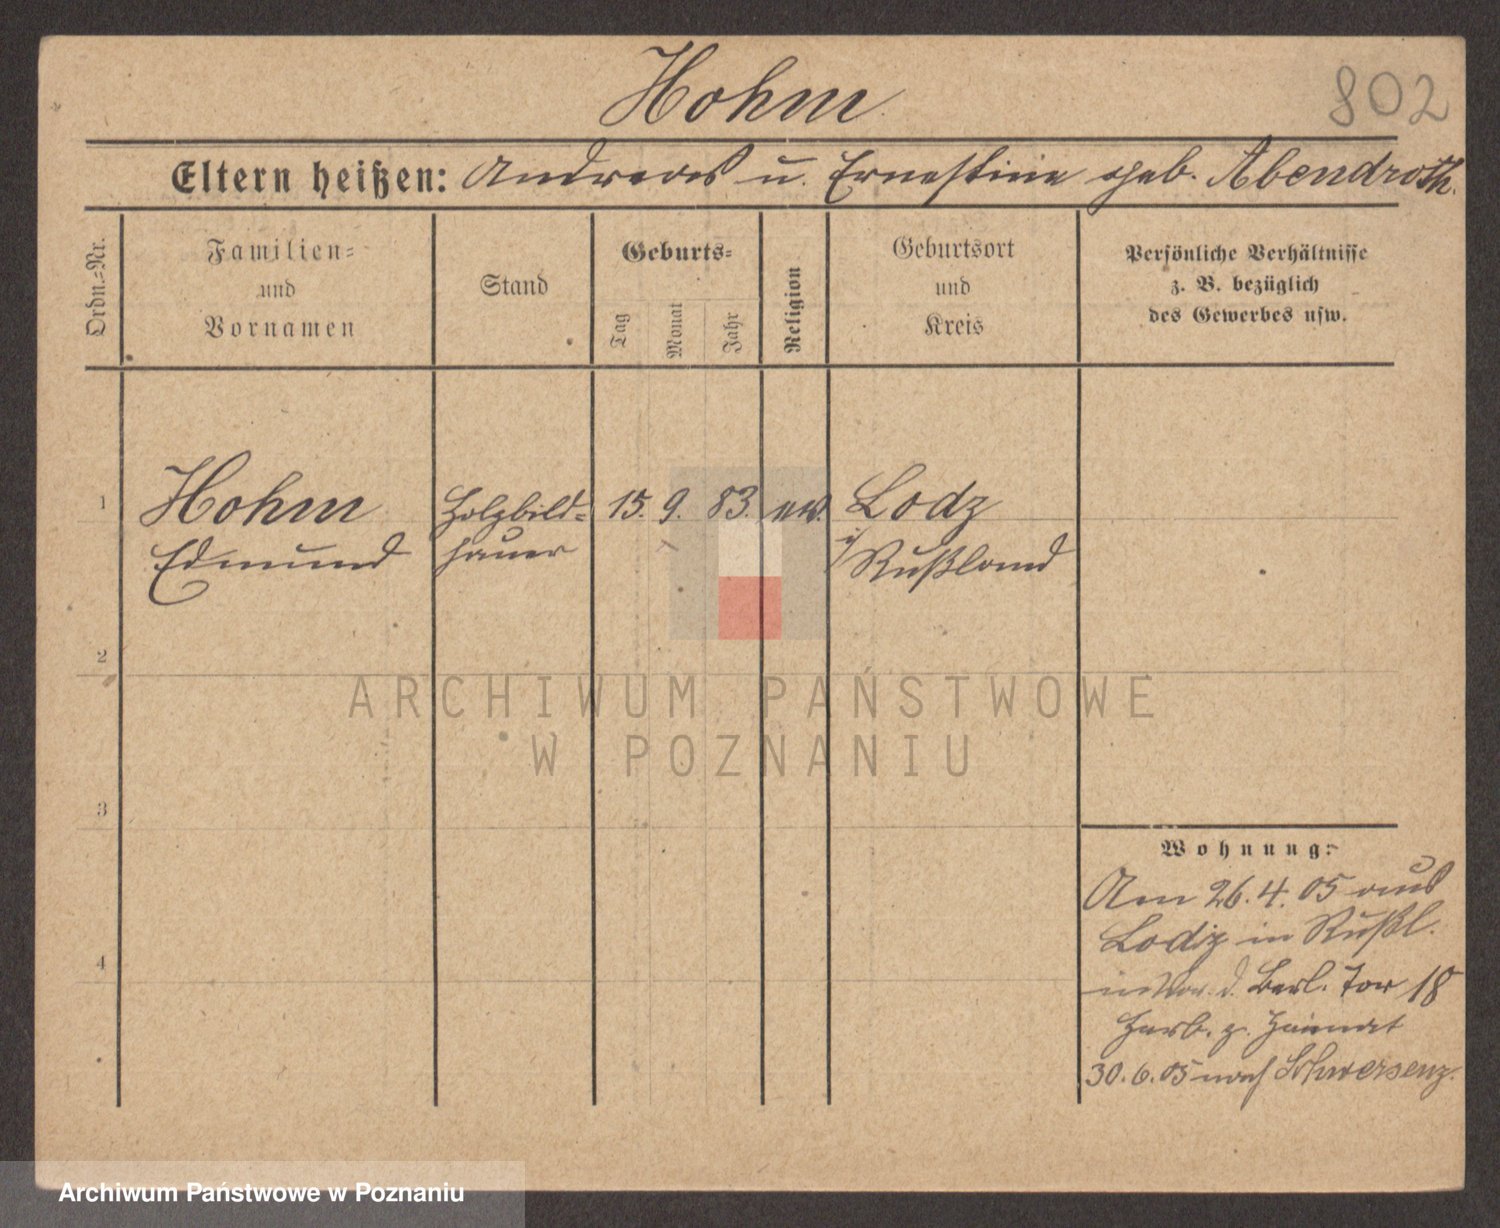 Hohm
802
Eltern heißen: Andreas u. Ernestine geb. Abendroth.
Ordn.=Nr.
Familien=
und
Vornamen
Stand
Geburts=
Tag
Monat
Jahr
Religion
Geburtsort
und
Kreis
Persönliche Verhältnisse
z. B. bezüglich
des Gewerbes usw.
1
Hohm
Edmund
Holzbild=
hauer
15. 9. 83.
ev.
Lodz
i/Rußland
2
3
4
Wohnung:
Am 26.4.05 aus
Lodz in Rußl.
d. Berl. Tor 18
Herb. z. Heimat
30.6.05 nach Schwersenz.
ARCHIWUM PAŃSTWOWE
W POZNANIU
Archiwum Państwowe w Poznaniu